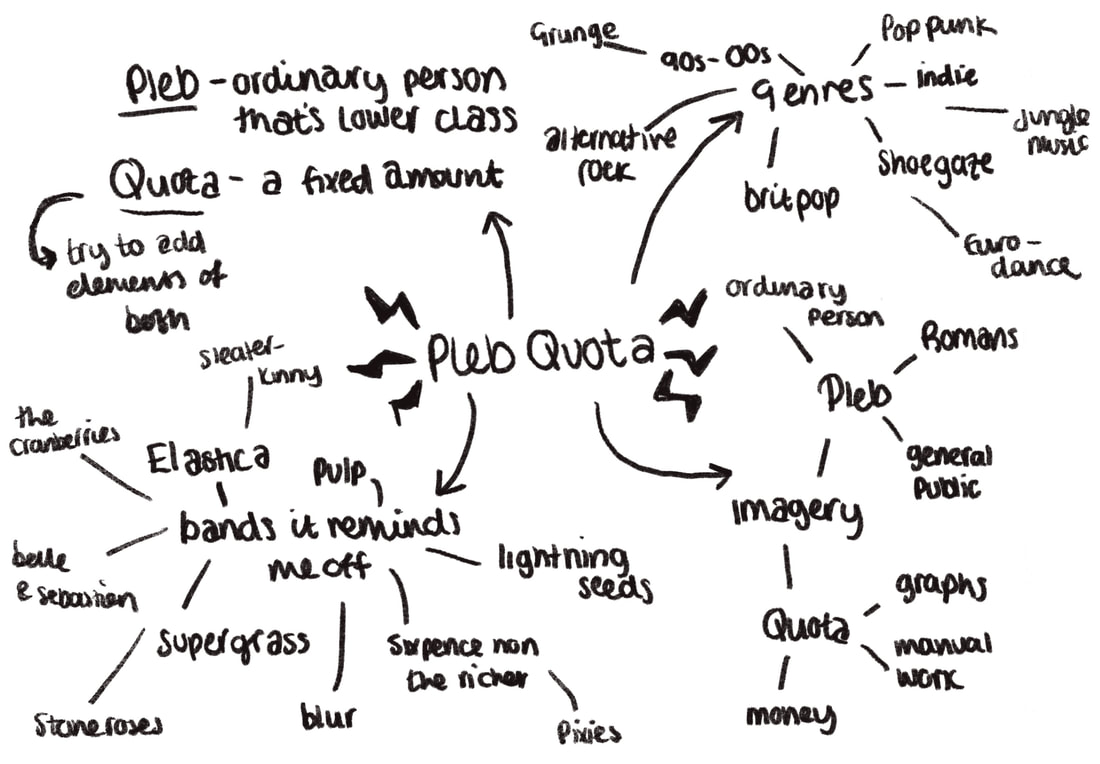 Pleb - ordinary person
that's lower class
Quota - a fixed amount
try to add
elements of
both
Grunge
90s-00s
Pop punk
genres
indie
alternative
rock
jungle
music
Shoegaze
britpop
Euro-
dance
Pleb Quota
ordinary
person
Romans
Pleb
general
public
Imagery
Quota
graphs
manual
work
money
sleater-
kinny
the
cranberries
Elastica
Pulp
bands it reminds
me off
lightning
seeds
belle
& sebastien
supergrass
Sixpence non
the richer
Stoneroses
blur
Pixies